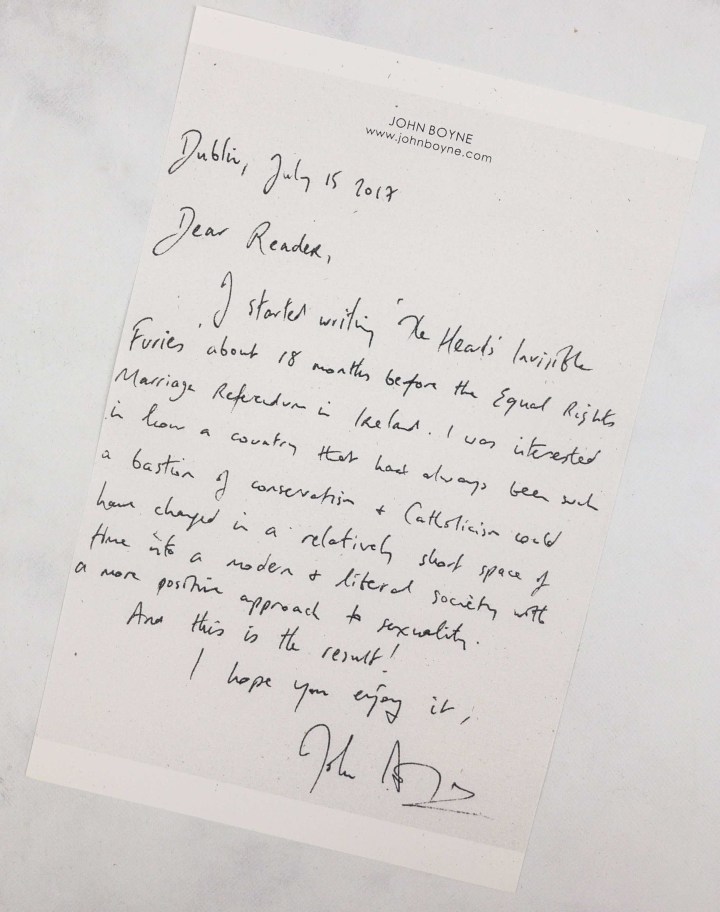 JOHN BOYNE
www.johnboyne.com
Dublin, July 15 2017
Dear Reader,
I started writing 'The Heart's Invisible
Furies' about 18 months before the Equal Rights
Marriage Referendum in Ireland. I was interested
in how a country that had always been such
a bastion of conservatism + Catholicism could
have changed in a relatively short space of
time into a modern + liberal society with
a more positive approach to sexuality.
And this is the result!
I hope you enjoy it,
John Boyne